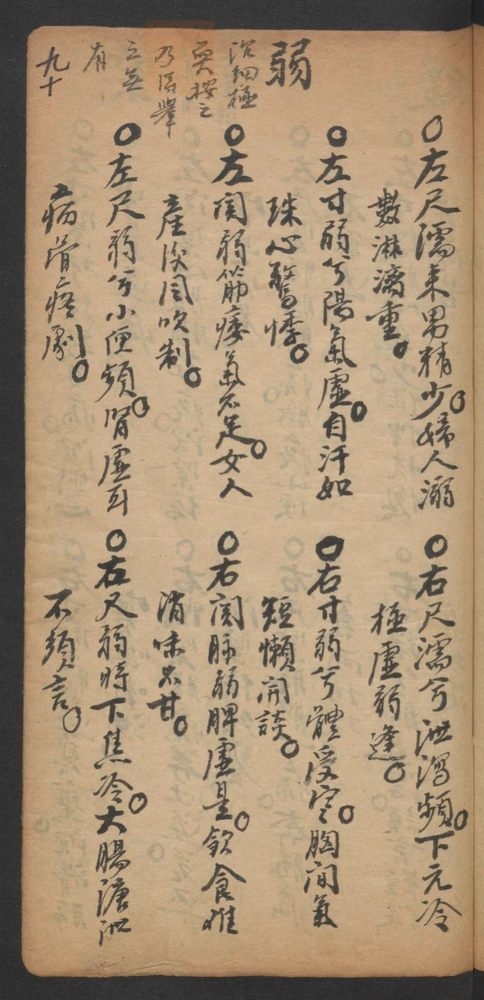 〇左尺濡来男精少。婦人溺
數淋漓重。
〇右尺濡兮泄瀉頻。下元冷
極虛弱逢。
弱
沉細極
耎按之
乃得舉
之無
有
〇左寸弱兮陽氣虛。自汗如
珠心驚悸。
〇右寸弱兮體受寒。胸间氣
短懶開談。
〇左関弱筋痿氣不足。女人
產後風吹制。
〇右関脉弱脾虛是。飲食难
消味不甘。
〇左尺弱兮小便頻。腎虛耳
病骨疼劇。
〇右尺弱時下焦冷。大腸溏泄
不須言。
九十